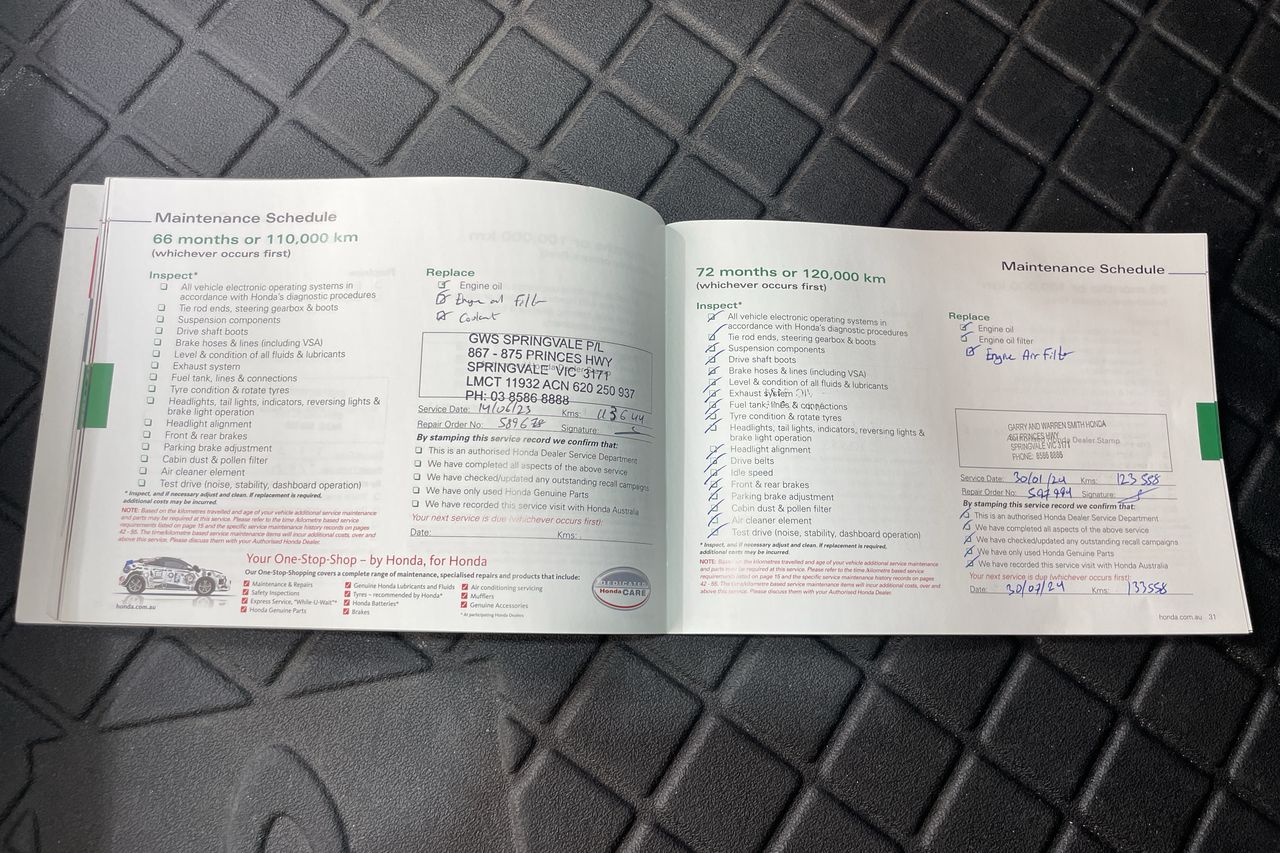 Maintenance Schedule
66 months or 110,000 km
(whichever occurs first)
Inspect*
All vehicle electronic operating systems in
accordance with Honda's diagnostic procedures
Tie rod ends, steering gearbox & boots
Suspension components
Drive shaft boots
Brake hoses & lines (including VSA)
Level & condition of all fluids & lubricants
Exhaust system
Fuel tank, lines & connections
Tyre condition & rotate tyres
Headlights, tail lights, indicators, reversing lights &
brake light operation
Headlight alignment
Front & rear brakes
Parking brake adjustment
Cabin dust & pollen filter
Air cleaner element
Test drive (noise, stability, dashboard operation)
* Inspect, and if necessary adjust and clean. If replacement is required,
additional costs may be incurred.
NOTE: Based on the kilometres travelled and age of your vehicle additional service maintenance
and parts may be required at this service. Please refer to the time /kilometre based service
requirements listed on page 15 and the specific service maintenance history records on pages
42 - 56. The time/kilometre based service maintenance items will incur additional costs, over and
above this service. Please discuss them with your Authorised Honda Dealer.
Replace
Engine oil
Engine oil filter
Coolant
GWS SPRINGVALE P/L
867 - 875 PRINCES HWY
SPRINGVALE VIC 3171
LMCT 11932 ACN 620 250 937
PH: 03 8586 8888
Service Date: 14/06/23 Kms: 113644
Repair Order No: 589678 Signature:
By stamping this service record we confirm that:
This is an authorised Honda Dealer Service Department
We have completed all aspects of the above service
We have checked/updated any outstanding recall campaigns
We have only used Honda Genuine Parts
We have recorded this service visit with Honda Australia
Your next service is due (whichever occurs first):
Date: Kms:
Your One-Stop-Shop – by Honda, for Honda
Our One-Stop-Shopping covers a complete range of maintenance, specialised repairs and products that include:
Maintenance & Repairs
Safety Inspections
Express Service, "While-U-Wait"*
Honda Genuine Parts
Genuine Honda Lubricants and Fluids
Tyres – recommended by Honda*
Honda Batteries*
Brakes
Air conditioning servicing
Mufflers
Genuine Accessories
* At participating Honda Dealers
DEDICATED
HondaCARE
honda.com.au
Maintenance Schedule
72 months or 120,000 km
(whichever occurs first)
Inspect*
All vehicle electronic operating systems in
accordance with Honda's diagnostic procedures
Tie rod ends, steering gearbox & boots
Suspension components
Drive shaft boots
Brake hoses & lines (including VSA)
Level & condition of all fluids & lubricants
Exhaust system
Fuel tank, lines & connections
Tyre condition & rotate tyres
Headlights, tail lights, indicators, reversing lights &
brake light operation
Headlight alignment
Drive belts
Idle speed
Front & rear brakes
Parking brake adjustment
Cabin dust & pollen filter
Air cleaner element
Test drive (noise, stability, dashboard operation)
* Inspect, and if necessary adjust and clean. If replacement is required,
additional costs may be incurred.
NOTE: Based on the kilometres travelled and age of your vehicle additional service maintenance
and parts may be required at this service. Please refer to the time /kilometre based service
requirements listed on page 15 and the specific service maintenance history records on pages
42 - 56. The time/kilometre based service maintenance items will incur additional costs, over and
above this service. Please discuss them with your Authorised Honda Dealer.
Replace
Engine oil
Engine oil filter
Engine Air Filter
GARRY AND WARREN SMITH HONDA
PRINCES HWY Dealer Stamp
SPRINGVALE VIC 3171
PHONE: 8586 8888
Service Date: 30/01/24 Kms: 123558
Repair Order No: 597994 Signature:
By stamping this service record we confirm that:
This is an authorised Honda Dealer Service Department
We have completed all aspects of the above service
We have checked/updated any outstanding recall campaigns
We have only used Honda Genuine Parts
We have recorded this service visit with Honda Australia
Your next service is due (whichever occurs first):
Date: 30/07/24 Kms: 133558
honda.com.au 31